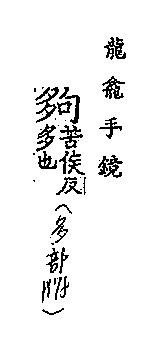 龍龕手鏡
夠苦侯反
多也
(多部